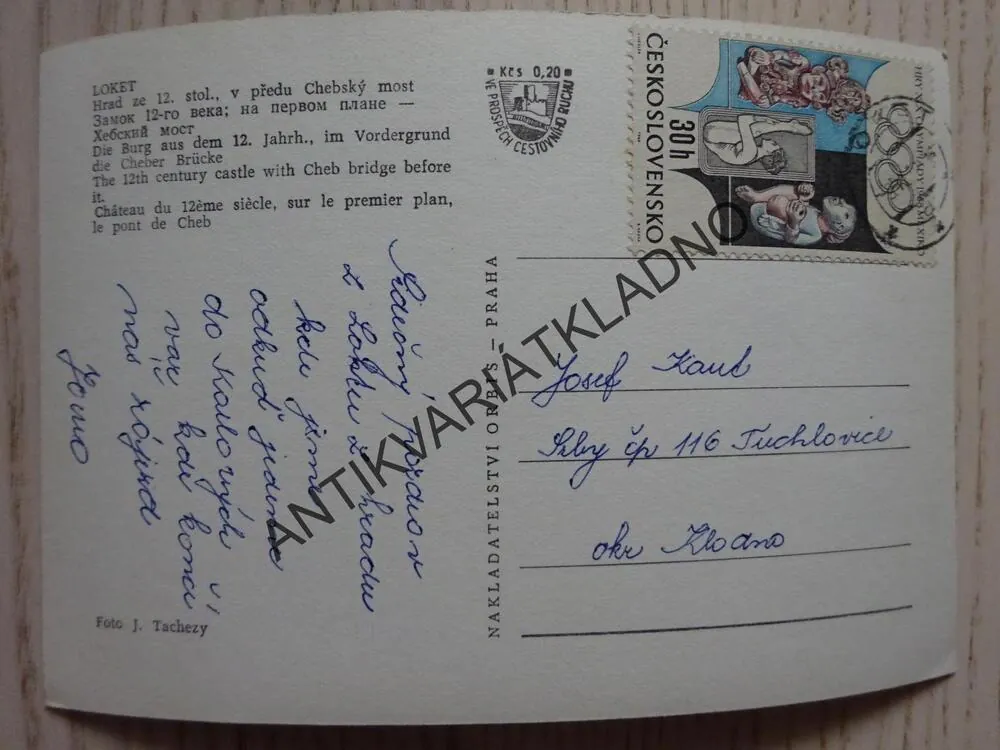 LOKET
Hrad ze 12. stol., v předu Chebský most
Замок 12-го века; на первом плане —
Хебский мост
Die Burg aus dem 12. Jahrh., im Vordergrund
die Cheber Brücke
The 12th century castle with Cheb bridge before
it.
Château du 12ème siècle, sur le premier plan,
le pont de Cheb
Kčs 0,20
VE PROSPĚCH CESTOVNÍHO RUCHU
ČESKOSLOVENSKO
30h
Srdečný pozdrav
z Loktu z hradu
kde jsme
odkuď jedeme
do Karlových
var
kdi končí
nas zájezd
NAKLADATELSTVÍ ORBIS – PRAHA
Josef Kaut
Srby čp 116 Tuchlovice
okr Kladno
Foto J. Tachezy
ANTIKVARIÁTKLADNO